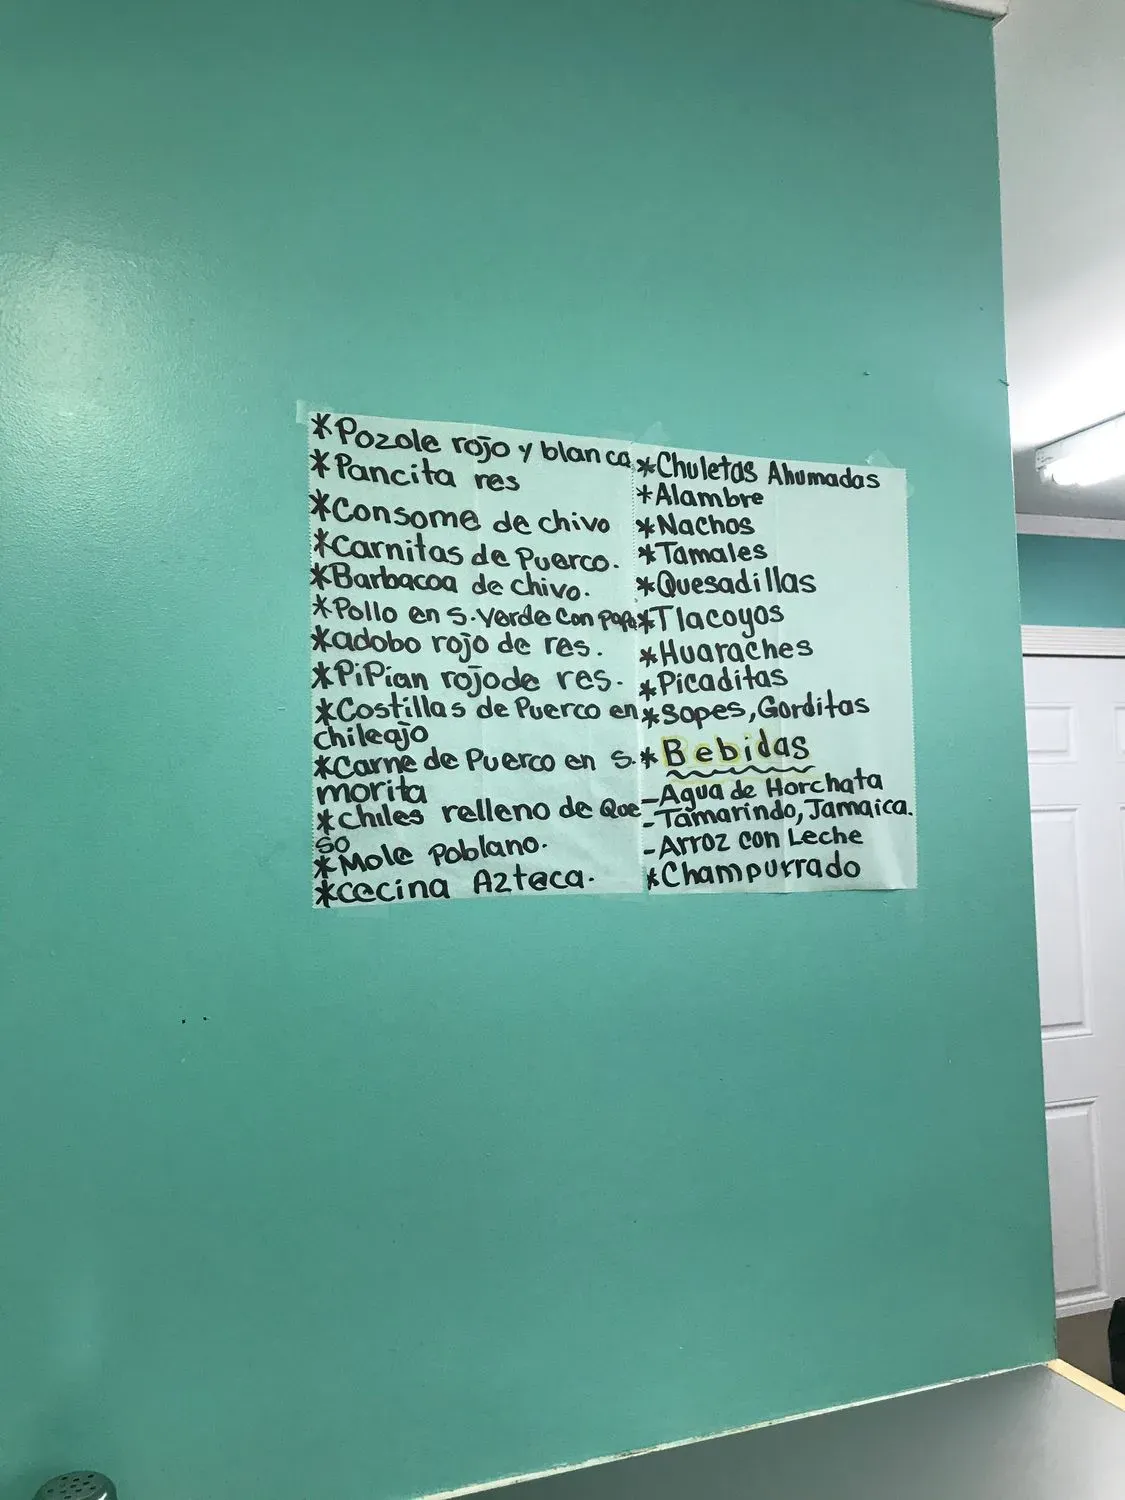 *Pozole rojo y blanca
*Pancita res
*Consome de chivo
*Carnitas de Puerco.
*Barbacoa de chivo.
*Pollo en s. verde con papa
*adobo rojo de res.
*PiPian rojo de res.
*Costillas de Puerco en
chileajo
*Carne de Puerco en s.
morita
*chiles relleno de Que
so
*Mole Poblano.
*cecina Azteca.
*Chuletas Ahumadas
*Alambre
*Nachos
*Tamales
*Quesadillas
*Tlacoyos
*Huaraches
*Picaditas
*Sopes, Gorditas
*Bebidas
-Agua de Horchata
-Tamarindo, Jamaica.
-Arroz con Leche
*Champurrado